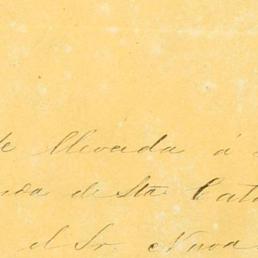 llevada á
de Sta Cata
el Sr. Nava